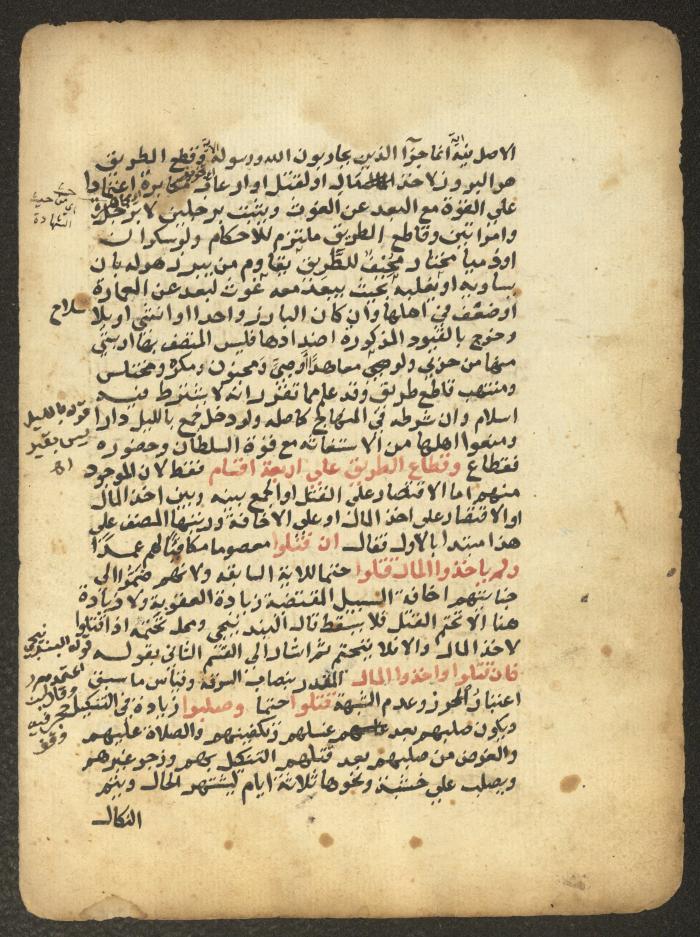 الاصل فيه اية انما جزآ الذين يحاربون الله ورسوله الاية وقطع الطريق
هو البروز لاخذ مال او لقتل او ارعاب مكابرة اعتمادا
علي القوة مع البعد عن الغوث ويثبت برجلين لا برجل
وامراتين وقاطع الطريق ملتزم للاحكام ولو سكران
او ذميا مختار مخيف للطريق يقاوم من يبرز هو له بان
يساويه او يغلبه بحيث يبعد معه غوث لبعد عن العمارة
او ضعف في اهلها وان كان البارز واحدا او انثي او بلا سلاح
وخرج بالقيود المذكورة اضدادها فليس المتصف بها او بشي
منها من حربي ولو صبي معاهدا او صبي ومجنون ومكره ومختلس
ومنتهب قاطع طريق وقد علم مما تقرر انه لا يشترط فيه
اسلام وان شرطه في المنهاج كاصله ولو دخل جمع بالليل دارا
ومنعوا اهلها من الاستغاثة مع قوة السلطان وحضوره
فقطاع وقطاع الطريق علي اربعة اقسام فقط لان الموجود
منهم اما الاقتصار علي القتل او الجمع بينه وبين اخذ المال
او الاقتصار علي اخذ المال او علي الاخافة ورتبها المصنف علي
هذا مبتدا بالاول فقال ان قتلوا معصوما مكافئا لهم عمدا
ولم ياخذوا المال قتلوا حتما للاية السابقة ولانهم ضموا الي
جنايتهم اخافة السبيل المقتضية زيادة العقوبة ولا زيادة
هنا الا تحتم القتل فلا يسقط قال البندنيجي ومحل تحتمه اذا قتلوا
لاخذ المال والا فلا يتحتم ثم اشار الي القسم الثاني بقوله
فان قتلوا واخذوا المال المقدر بنصاب السرقة وقياس ما سبق
اعتبار الحرز وعدم الشبهة قتلوا حتما وصلبوا زيادة في التنكيل
ويكون صلبهم بعد غسلهم وتكفينهم والصلاة عليهم
والغرض من صلبهم بعد قتلهم التنكيل بهم وزجر غيرهم
ويصلب علي خشبة ونحوها ثلاثة ايام ليشتهر الحال ويتم
النكال
من حيث
الشهادة
قوله بالليل
ليس بقيد
اهـ
قوله البندنيجي